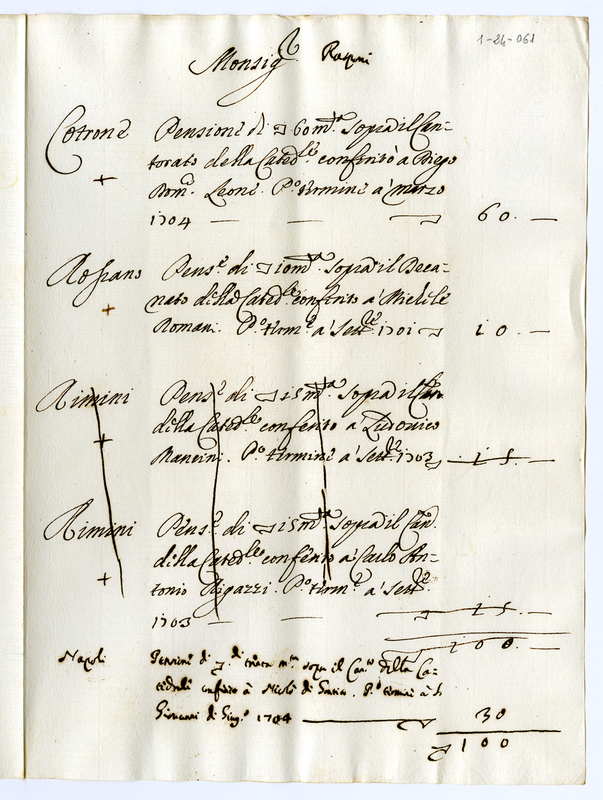 1-24-061
Monsig.r
Cotrone Pensione di 60 m.ta sopra il Can-
torato della Cated.le conferito à Diego
Dom.o Leone. P.o termine a' marzo
1704 — — 60. —
+
Rossano Pens.e di 10 m.ta sopra il Deca-
nato della Cated.le conferito a' Michele
Romani. P.o term.e a' Sett.e 1701 10. —
+
Rimini Pens.e di 15 m.ta sopra il Can.
della Cated.le conferito a Ludovico
Mancini. P.o termine a' Sett.e 1703 15. —
+
Rimini Pens.e di 15 m.ta sopra il Can.
della Cated.le conferito a' Carlo An-
tonio Rigazzi. P.o term.e a' Sett.e
+
1703 — 15. —
100. —
Napoli Pensione di trenta m.ta sopra il Can.to della Ca-
tedrale conferito à Nicolò di P.o termine à S.
Giovanni di Giug.o 1704 — 30
100